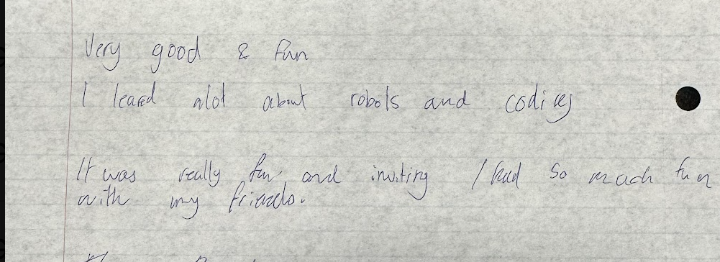 Very good & fun
I leard alot about robots and coding
It was really fun and inviting I had so much fun
with my friends.